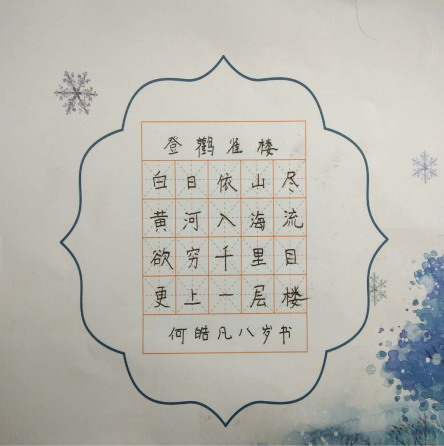 登鹳雀楼
白日依山尽
黄河入海流
欲穷千里目
更上一层楼
何皓凡八岁书